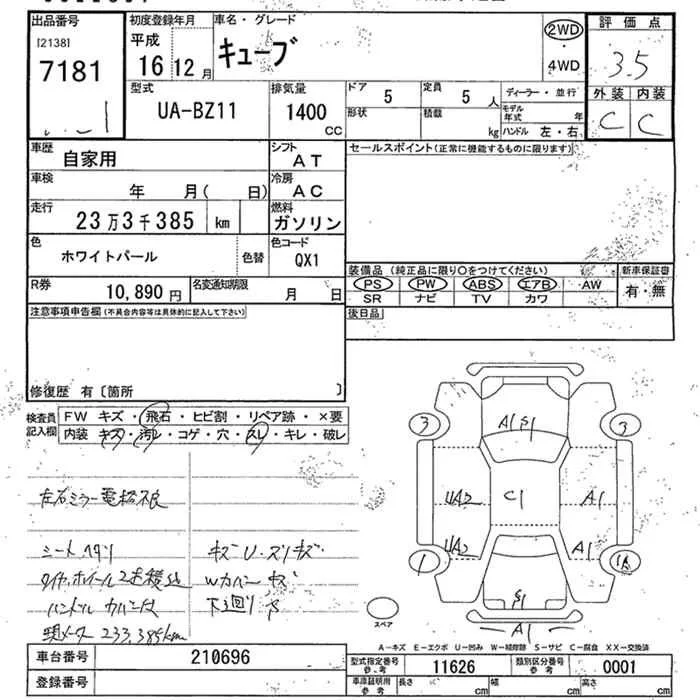 出品番号
[2138]
7181
初度登録年月
平成
16 12月
車名・グレード
キューブ
2WD
4WD
評価点
3.5
外装 内装
C C
型式
UA-BZ11
排気量
1400
CC
ドア
5
定員
5 人
形状
積載
kg
ディーラー・並行
モデル年式 年
ハンドル 左・右
車歴
自家用
シフト
AT
車検
年 月( 日)
冷房
AC
走行
23万3千385 km
燃料
ガソリン
色
ホワイトパール
色替
色コード
QX1
R券
10,890円
名変通知期限
月 日
セールスポイント(正常に機能するものに限ります)
装備品(純正品に限り○をつけてください)
PS PW ABS エアB AW
SR ナビ TV カワ
新車保証書
有・無
後日品
注意事項申告欄(不具合内容等は具体的に記入して下さい)
修復歴 有〔箇所 〕
検査員記入欄
FW キズ・飛石・ヒビ割・リペア跡・×要
内装 キズ・汚レ・コゲ・穴・スレ・キレ・破レ
左右ミラー電格不良
シートヘタリ
タイヤ、ホイール2本積込
ハンドルカバー付
現メーター 233,385km
キズU・スリキズ
Wカバーキズ
下廻りS
3
3
A1 S1
UA2
C1
A1
UA2
A1
1
S1
A1
スペア
A-キズ E-エクボ U-凹み W-補修跡 S-サビ C-腐食 XX-交換済
車台番号
210696
登録番号
型式指定番号 参考
11626
類別区分番号 参考
0001
車庫証明用 参考
長さ cm
幅 cm
高さ cm